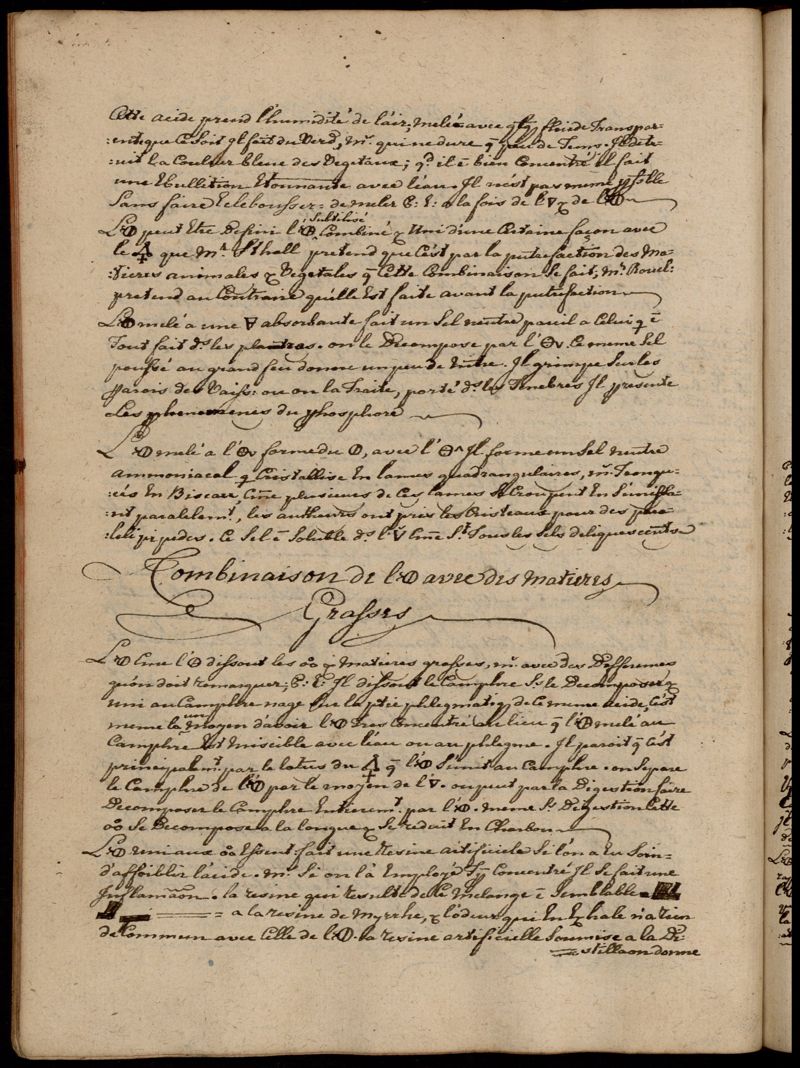 Cette acide prend l'humidité de l'air; melée avec qlq fluide Transpar-
:ent que ce soit il fait du Verd, Mr. qui ne dure q̄ peu de Tems. Il det-
ruit la Couleur bleue des Vegetaux; qd. il ē bien Concentré il fait
une Ebullition Etonnante avec l'eau. Il n'est pas meme possible
Sans faire eclebousser = de meler E: E: a la fois de l'🜄 & de l'
peut Etre Defini l'🜔 Subtilisé Combiné & Uni d'une Certaine façon avec
le 🜍 que Mr. Sthall pretend que C'est par la putrefaction des Ma-
:tieres animales & Vegetales q̄ Cette Combinaison Se fait, Mr. Rouel:
pretend au Contraire qu'elle Est faite avant la putrefaction
melé a une absorbante fait un Sel neutre pareil a Celui q̄ ē
Tout fait ds. les plantras. on le Decompose par l' Ce meme Sel
poussé au grand feu donne un peu de nitre. Il grimpe Sur les
parois des Vaiss: ou on la Traite, porté ds. les Tenebres Il presente
Les phenomenes du phosphore
melé a l' forme du avec l' Il forme un Sel neutre
ammoniacal q̄ Cristallise En lames quadrangulaires, Mr.
En Biscau, Cme plusieurs de Ces lames Se Croupent En
paralelemt., les autheurs ont pris les Cristeaux pour des para-
:lelipipedes. Ce Sel ē Soluble ds. l' Cme St. Tous les Sels deliquescents
Combinaison de l' avec des Matieres
Grasses
Cme l' dissout les & Matieres grasses, Mr. avec des Differences
qu'on doit remarquer; E: E: Il dissout le Camphre Ss. le Decomposer &
uni au Camphre nage Sur la ptie phlegmatiq de Ce meme acide, C'est
meme la un moyen d'avoir l' tres Concentré au lieu q̄ l' melé au
Camphre Est Miscible avec l'eau ou au phlegme. Il paroit q̄ C'est
principalemt. par le latus du 🜍 q̄ l' S'unit au Camphre. on Separe
le Camphre de l' par le moyen de l'🜄. on peut par la Digestion faire
Decomposer le Camphre Entieremt. par l' meme Ss. Digestion Cette
Se Decompose a la longue & Se reduit En Charbon
uni aux Essent: fait une resine artificiele Si l'on a Eu Soin
d'affoiblir l'acide. Mr. Si on l'a Employé Concentré Il Se fait une
Inflamāon. la resine qui resulte de Ce Melange ē Semblable
a la resine de Myrrhe, & l'odeur qui En Exhale n'a rien
de Commun avec Celle de l' la resine artificielle Soumise a la Di-
stillaon donne